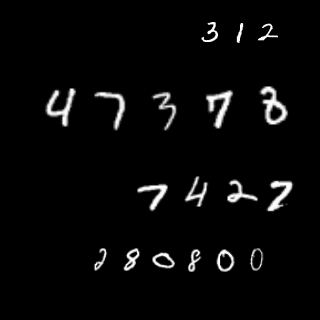 312
47378
7422
280800